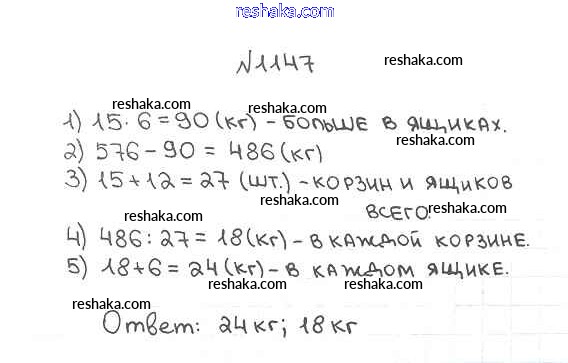 reshaka.com
№1147
reshaka.com
reshaka.com
reshaka.com
1) 15·6=90(кг)-БОЛЬШЕ В ЯЩИКАХ.
reshaka.com
2) 576-90=486(кг)
reshaka.com
reshaka.com
3) 15+12=27 (ШТ.)-КОРЗИН И ЯЩИКОВ
ВСЕГО.
reshaka.com
reshaka.com
4) 486:27=18(кг)-В КАЖДОЙ КОРЗИНЕ.
reshaka.com
5) 18+6=24(кг)-В КАЖДОМ ЯЩИКЕ.
reshaka.com
reshaka.com
Ответ: 24кг; 18кг
reshaka.com
reshaka.com